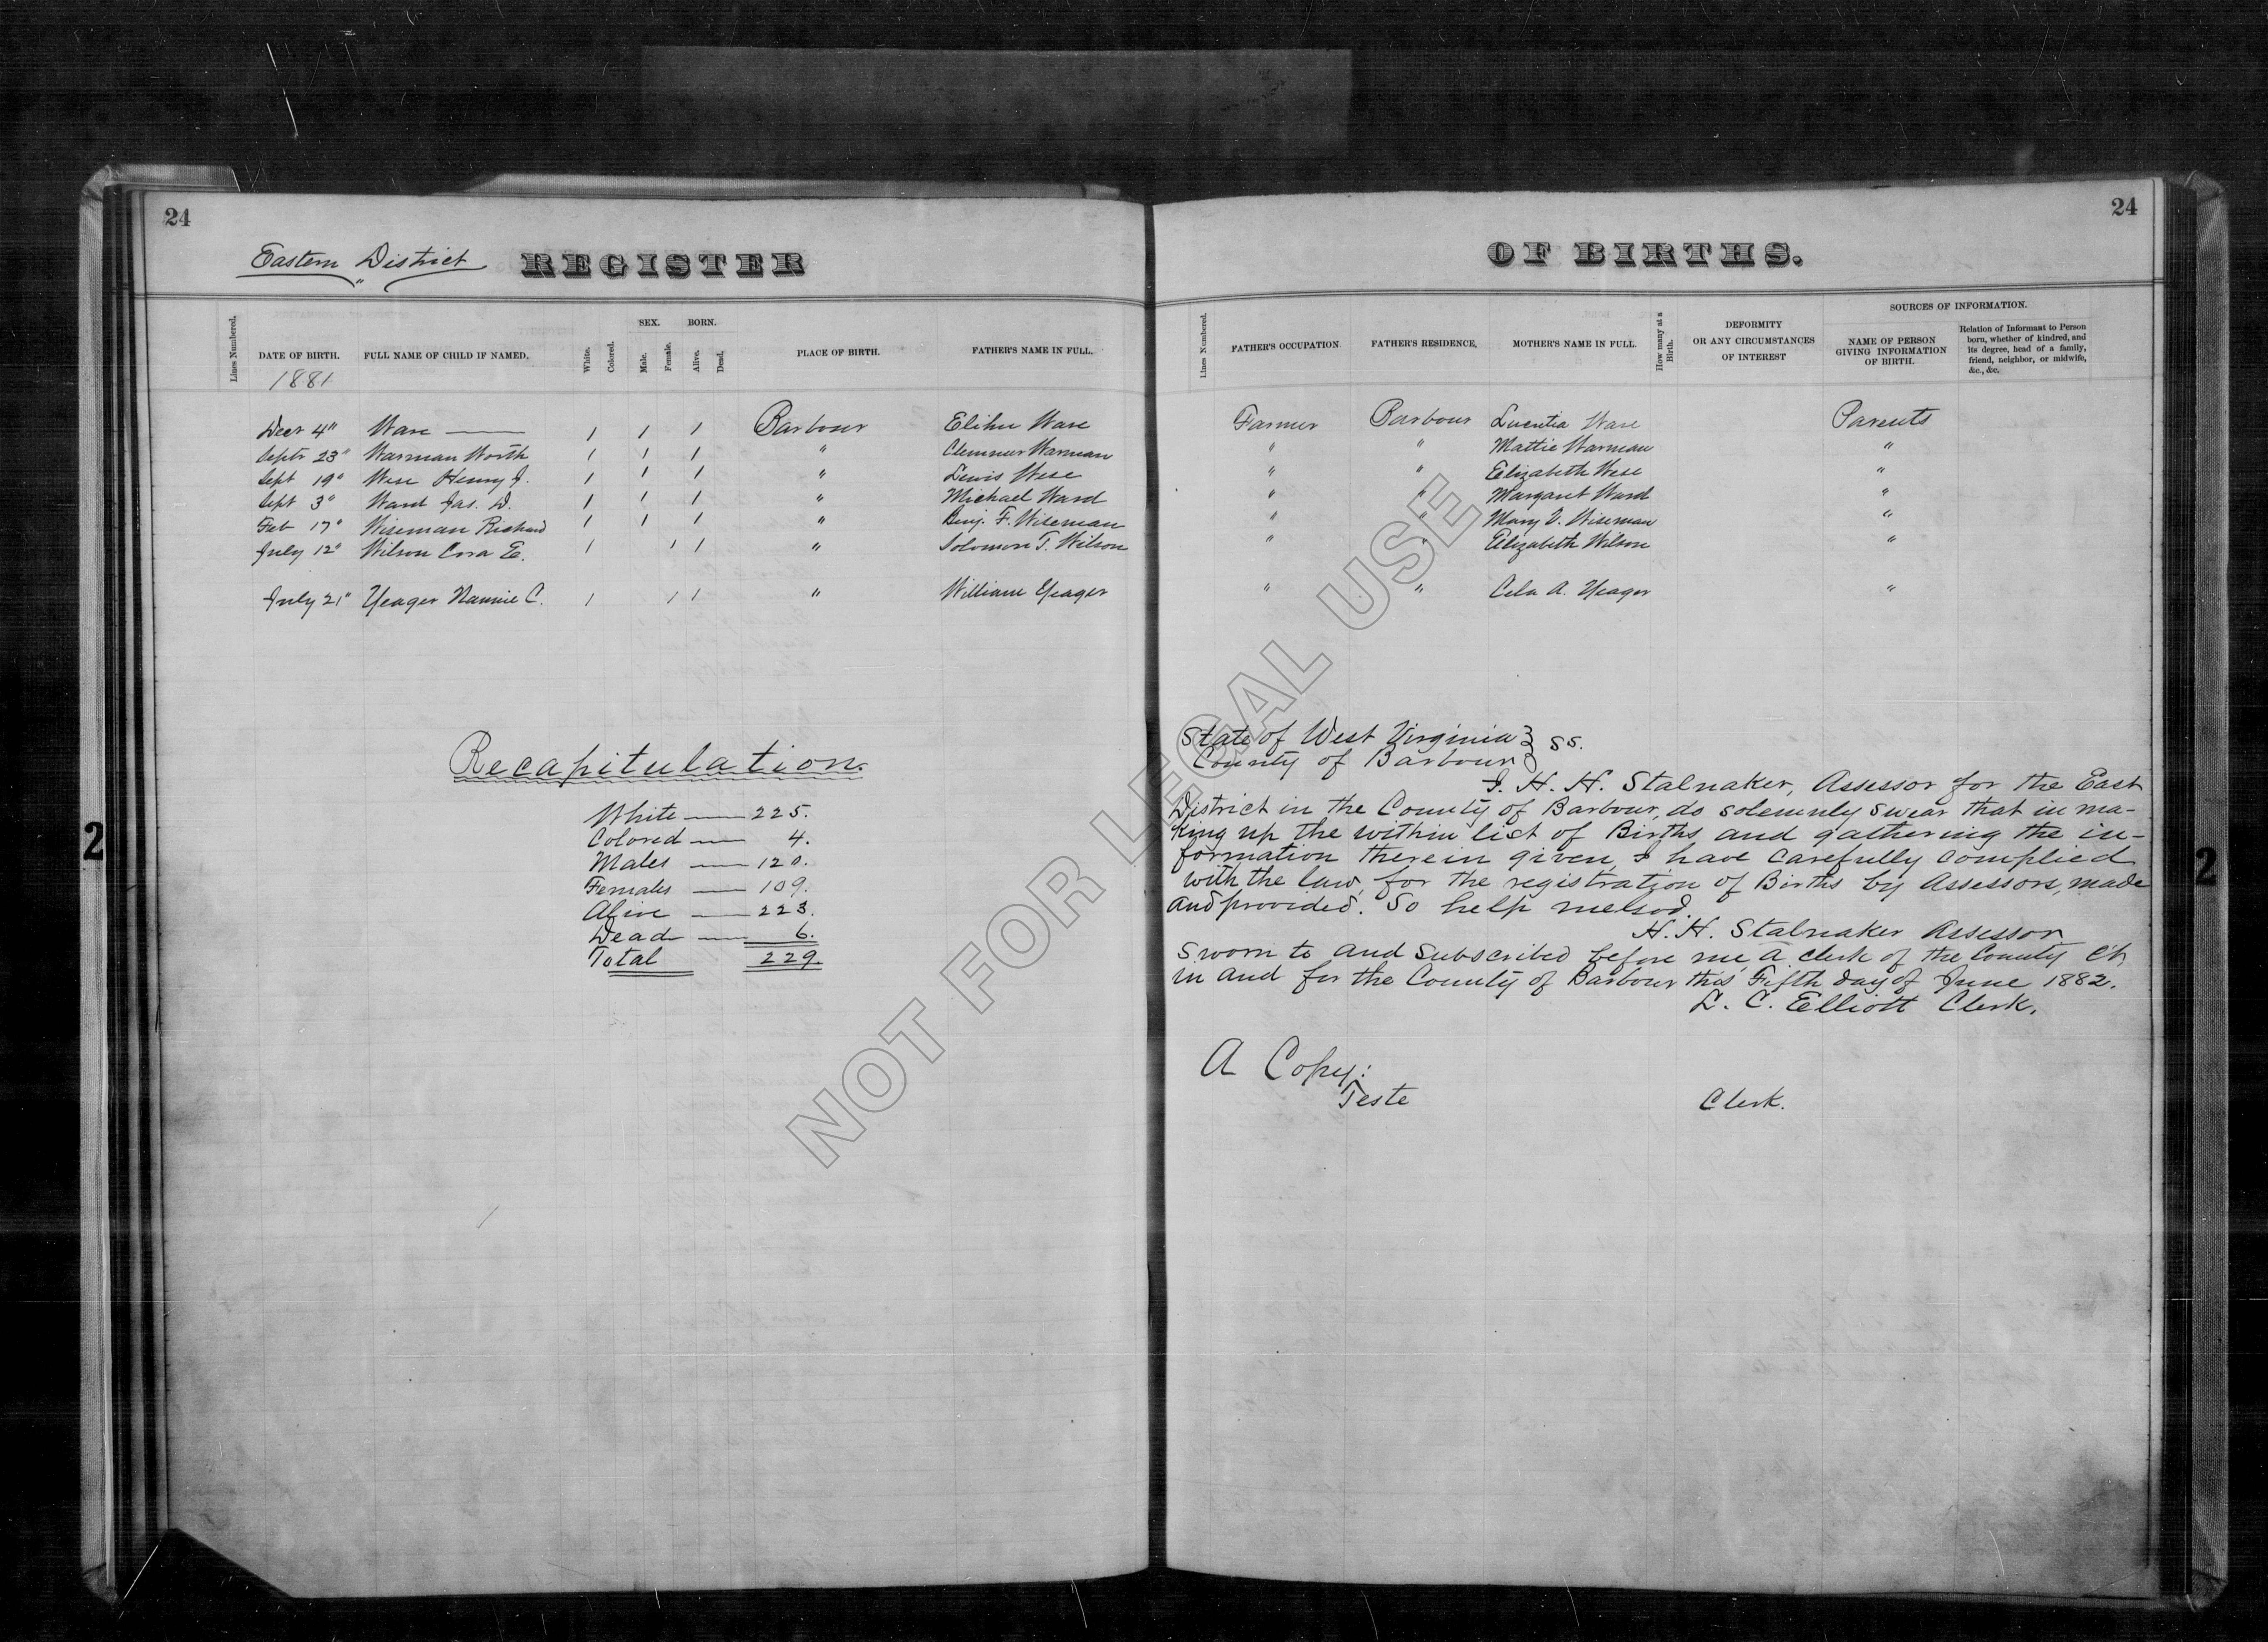 24
Eastern District
REGISTER
Lines Numbered.
DATE OF BIRTH.
1881
FULL NAME OF CHILD IF NAMED.
White.
Colored.
SEX.
Male.
Female.
BORN.
Alive.
Dead.
PLACE OF BIRTH.
FATHER'S NAME IN FULL.
Decr 4" Ware —— 1 1 1 Barbour Elihu Ware
Septr 23" Warman Worth 1 1 1 " Warman
Sept 19" Wese Henry J. 1 1 1 " Lewis Wese
Sept 3" Ward Jas. D. 1 1 1 " Michael Ward
Feb 17" Wiseman Richard 1 1 1 " Benj. F. Wiseman
July 12" Wilson Cora E. 1 1 1 " Solomon T. Wilson
July 21" Yeager Nannie C. 1 1 1 " William Yeager
Recapitulation.
White — 225.
Colored — 4.
Males — 120.
Females — 109.
Alive — 223.
Dead — 6.
Total 229.
24
OF BIRTHS.
Lines Numbered.
FATHER'S OCCUPATION
FATHER'S RESIDENCE,
MOTHER'S NAME IN FULL.
How many at a Birth.
DEFORMITY
OR ANY CIRCUMSTANCES
OF INTEREST
SOURCES OF INFORMATION.
NAME OF PERSON
GIVING INFORMATION
OF BIRTH.
Relation of Informant to Person
born, whether of kindred, and
its degree, head of a family,
friend, neighbor, or midwife,
&c., &c.
Farmer Barbour Lucretia Ware Parents
" " Mattie Warman "
" " Elizabeth Wese "
" " Margaret Ward "
" " Mary V. Wiseman "
" " Elizabeth Wilson "
" " Celia A. Yeager "
State of West Virginia } ss.
County of Barbour }
I. H. H. Stalnaker, Assessor for the East
District in the County of Barbour, do solemnly swear that in ma-
king up the within list of Births and gathering the in-
formation therein given, I have carefully complied
with the law, for the registration of Births by Assessors, made
and provided. So help me God.
H. H. Stalnaker Assessor
Sworn to and subscribed before me, a clerk of the County Ct,
in and for the County of Barbour this Fifth day of June 1882.
L. C. Elliott Clerk.
A Copy:
Teste Clerk.
2
2
NOT FOR LEGAL USE